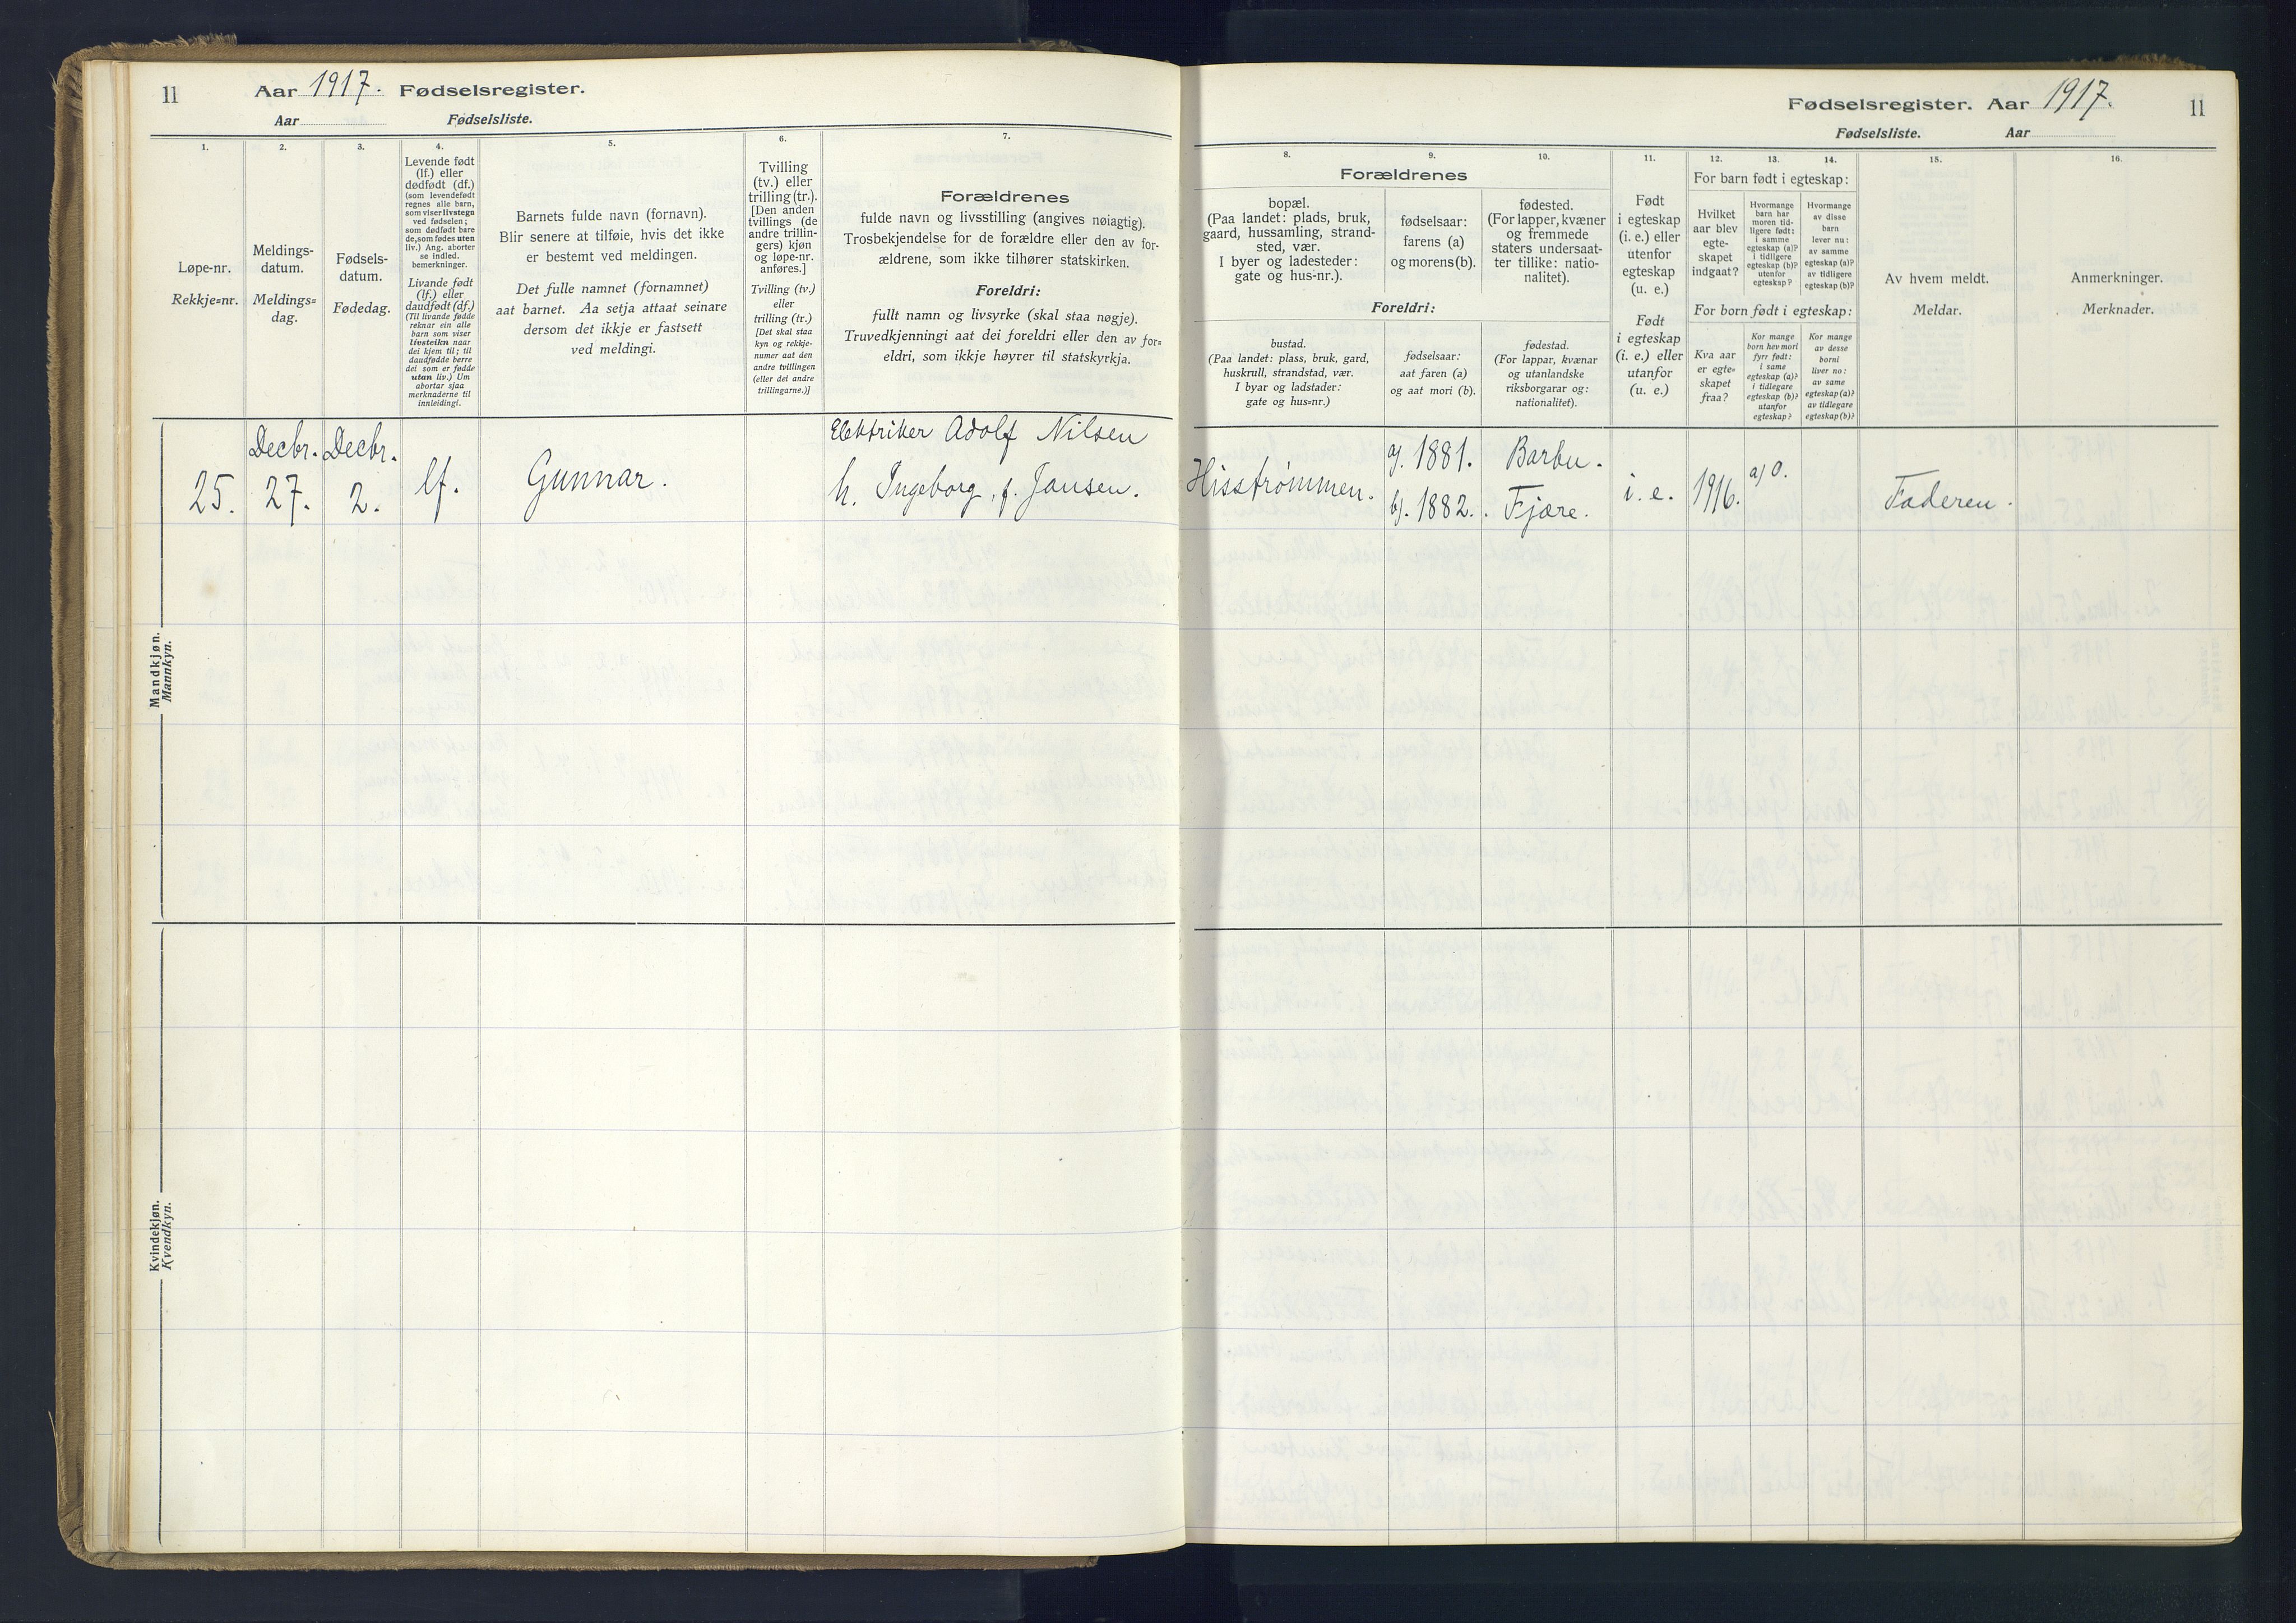 11
Aar 1917. Fødselsregister.
Aar Fødselsliste.
1.
2.
3.
4.
5.
6.
7.
Løpe-nr.
Rekkje=nr.
Meldings-
datum.
Meldings=
dag.
Fødsels-
datum.
Fødedag.
Levende født
(lf.) eller
dødfødt (df.)
(som levendefødt
regnes alle barn,
som viser livstegn
ved fødselen;
som dødfødt bare
de, som fødes uten
liv.) Ang. aborter
se indled.
bemerkninger.
Livande født
(lf.) eller
daudfødt (df.)
(Til livande fødde
reknar ein alle
barn som viser
livsteikn naar
dei kjem til; til
daudfødde berre
dei som er fødde
utan liv.) Um
abortar sjaa
merknaderne til
innleidingi.
Barnets fulde navn (fornavn).
Blir senere at tilføie, hvis det ikke
er bestemt ved meldingen.
Det fulle namnet (fornamnet)
aat barnet. Aa setja attaat seinare
dersom det ikkje er fastsett
ved meldingi.
Tvilling
(tv.) eller
trilling (tr.).
[Den anden
tvillings (de
andre trillin-
gers) kjøn
og løpe-nr.
anføres.]
Tvilling (tv.)
eller
trilling (tr.)
[Det skal staa
kyn og rekkje-
numer aat den
andre tvillingen
(eller dei andre
trillingarne.)]
Forældrenes
fulde navn og livsstilling (angives nøiagtig).
Trosbekjendelse for de forældre eller den av for-
ældrene, som ikke tilhører statskirken.
Foreldri:
fullt namn og livsyrke (skal staa nøgje).
Truvedkjenningi aat dei foreldri eller den av for=
eldri, som ikkje høyrer til statskyrkja.
Mandkjøn.
Mannkyn.
25.
Decbr.
27.
Decbr.
2.
lf.
Gunnar.
Elektriker Adolf Nilsen
h. Ingeborg, f. Jansen.
Kvindekjøn.
Kvendkyn.
Fødselsregister. Aar 1917. 11
Fødselsliste. Aar
8.
9.
10.
11.
12.
13.
14.
15.
16.
Forældrenes
bopæl.
(Paa landet: plads, bruk,
gaard, hussamling, strand-
sted, vær.
I byer og ladesteder:
gate og hus-nr.).
fødselsaar:
farens (a)
og morens (b).
fødested.
(For lapper, kvæner
og fremmede
staters undersaat-
ter tillike: natio-
nalitet).
Foreldri:
bustad.
(Paa landet: plass, bruk, gard,
huskrull, strandstad, vær.
I byar og ladstader:
gate og hus=nr.)
fødselsaar:
aat faren (a)
og aat mori (b).
fødestad.
(For lappar, kvænar
og utanlandske
riksborgarar og:
nationalitet).
Født
i egteskap
(i. e.) eller
utenfor
egteskap
(u. e.)
Født
i egteskap
(i. e.) eller
utanfor
(u. e.)
For barn født i egteskap:
Hvilket
aar blev
egte-
skapet
indgaat?
Hvormange
barn har
moren tid-
ligere født:
i samme
egteskap (a)?
i tidligere
egteskap (b)?
utenfor
egteskap?
Hvormange
av disse
barn
lever nu:
av samme
egteskap (a)?
av tidligere
egteskap (b)?
For born født i egteskap:
Kva aar
er egte=
skapet
fraa?
Kor mange
born hev mori
fyrr født:
i same
egteskap (a)?
i tidlegare
egteskap (b)?
utanfor
egteskap?
Kor mange
av desse
borni
liver no:
av same
egteskap (a)?
av tidlegare
egteskap (b)?
Av hvem meldt.
Meldar.
Anmerkninger.
Merknader.
Hisstrømmen.
a). 1881.
b). 1882.
Barbu.
Fjære.
i. e.
1916.
a) 0.
Faderen.